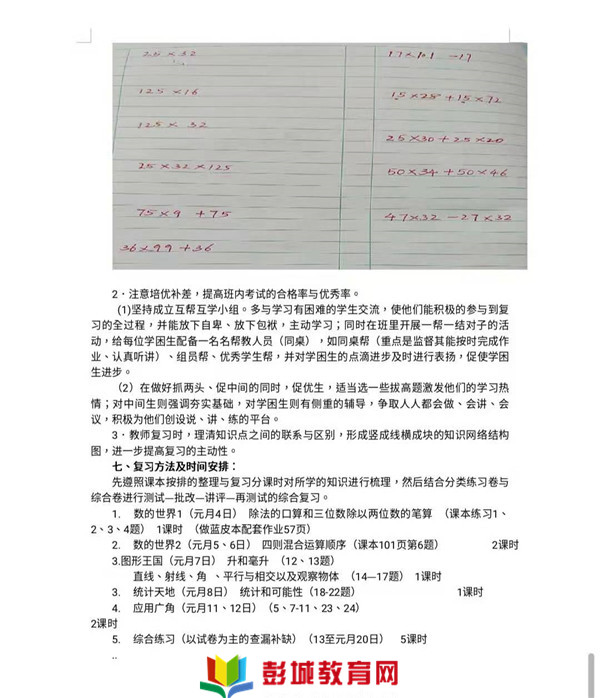 25×32
125×16
125×32
25×32×125
75×9+75
36×99+36
17×101-17
15×28+15×72
25×30+25×20
50×34+50×46
47×32-27×32
2．注意培优补差，提高班内考试的合格率与优秀率。
(1)坚持成立互帮互学小组。多与学习有困难的学生交流，使他们能积极的参与到复
习的全过程，并能放下自卑、放下包袱，主动学习；同时在班里开展一帮一结对子的活
动，给每位学困生配备一名名帮教人员（同桌），如同桌帮（重点是监督其能按时完成作
业、认真听讲）、组员帮、优秀学生帮，并对学困生的点滴进步及时进行表扬，促使学困
生进步。
（2）在做好抓两头、促中间的同时，促优生，适当选一些拔高题激发他们的学习热
情；对中间生则强调夯实基础，对学困生则有侧重的辅导，争取人人都会做、会讲、会
议，积极为他们创设说、讲、练的平台。
3．教师复习时，理清知识点之间的联系与区别，形成竖成线横成块的知识网络结构
图，进一步提高复习的主动性。
七、复习方法及时间安排：
先遵照课本按排的整理与复习分课时对所学的知识进行梳理，然后结合分类练习卷与
综合卷进行测试—批改—讲评—再测试的综合复习。
1. 数的世界1（元月4日） 除法的口算和三位数除以两位数的笔算 （课本练习1、
2、3、4题） 1课时 （做蓝皮本配套作业57页）
2. 数的世界2（元月5、6日） 四则混合运算顺序（课本101页第6题） 2课时
3.图形王国（元月7日） 升和毫升 （12、13题）
直线、射线、角 、平行与相交以及观察物体 （14—17题） 1课时
3. 统计天地（元月8日） 统计和可能性（18-22题） 1课时
4. 应用广角（元月11、12日）（5、7-11、23、24）
2课时
5. 综合练习（以试卷为主的查漏补缺）（13至元月20日） 5课时
..
彭城教育网